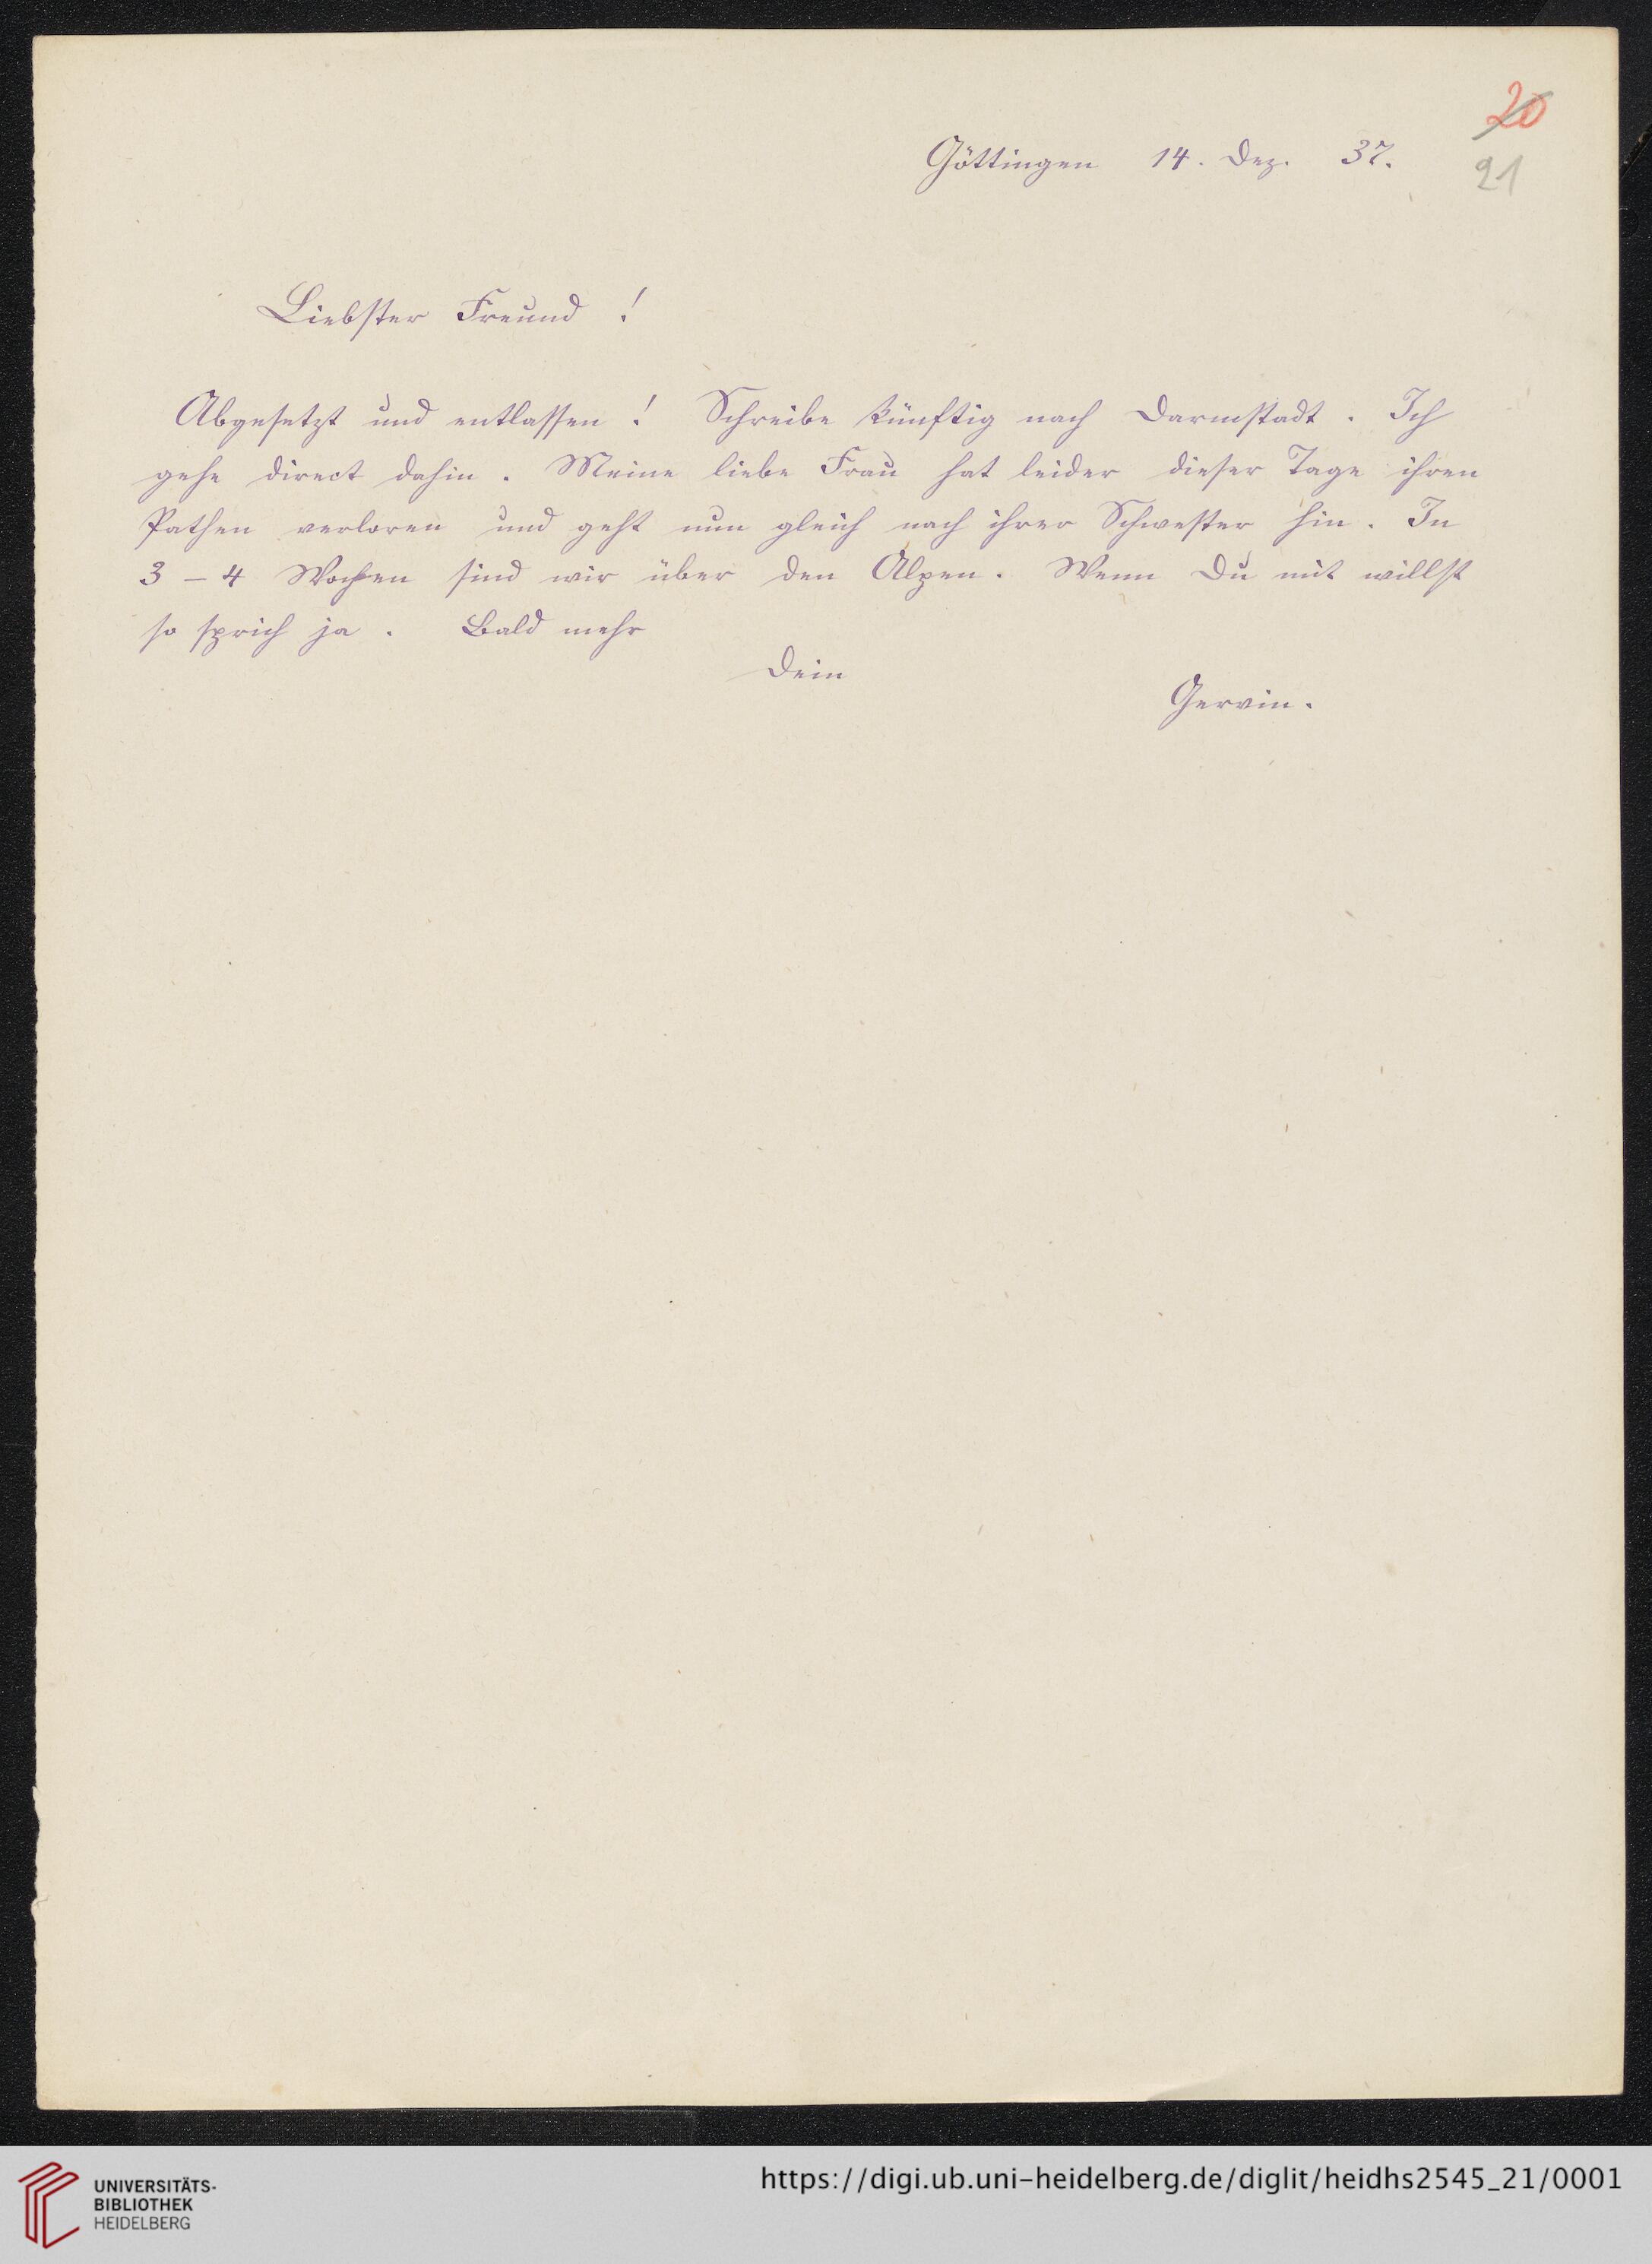 20
Göttingen 14. Dez. 37.
21
Liebster Freund !
Abgesetzt und entlassen ! Schreibe künftig nach Darmstadt . Ich
gehe direct dahin . Meine liebe Frau hat leider dieser Tage ihren
Pathen verloren und geht nun gleich nach ihrer Schwester hin . In
3 – 4 Wochen sind wir über den Alpen . Wenn Du mit willst
so sprich ja . Bald mehr
Dein
Gervin .
UNIVERSITÄTS-
BIBLIOTHEK
HEIDELBERG
https://digi.ub.uni-heidelberg.de/diglit/heidhs2545_21/0001